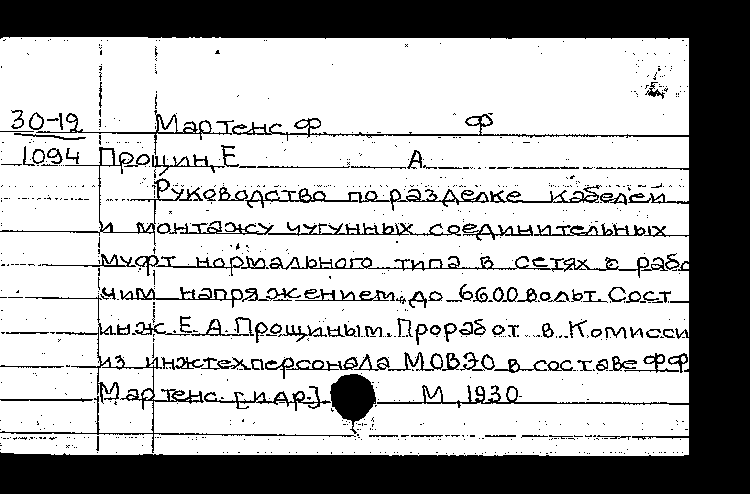 30-19 Мартенс, Ф. Ф
1094 Прощин, Е А.
Руководство по разделке кабелей
и монтажу чугунных соединительных
муфт нормального типа в сетях с рабо
чим напряжением до 6600 вольт. Сост
инж. Е. А. Прощиным. Проработ в Комисси
из инжтехперсонала МОВЭО в составе ФФ
Мартенс. [и др.] М, 1930